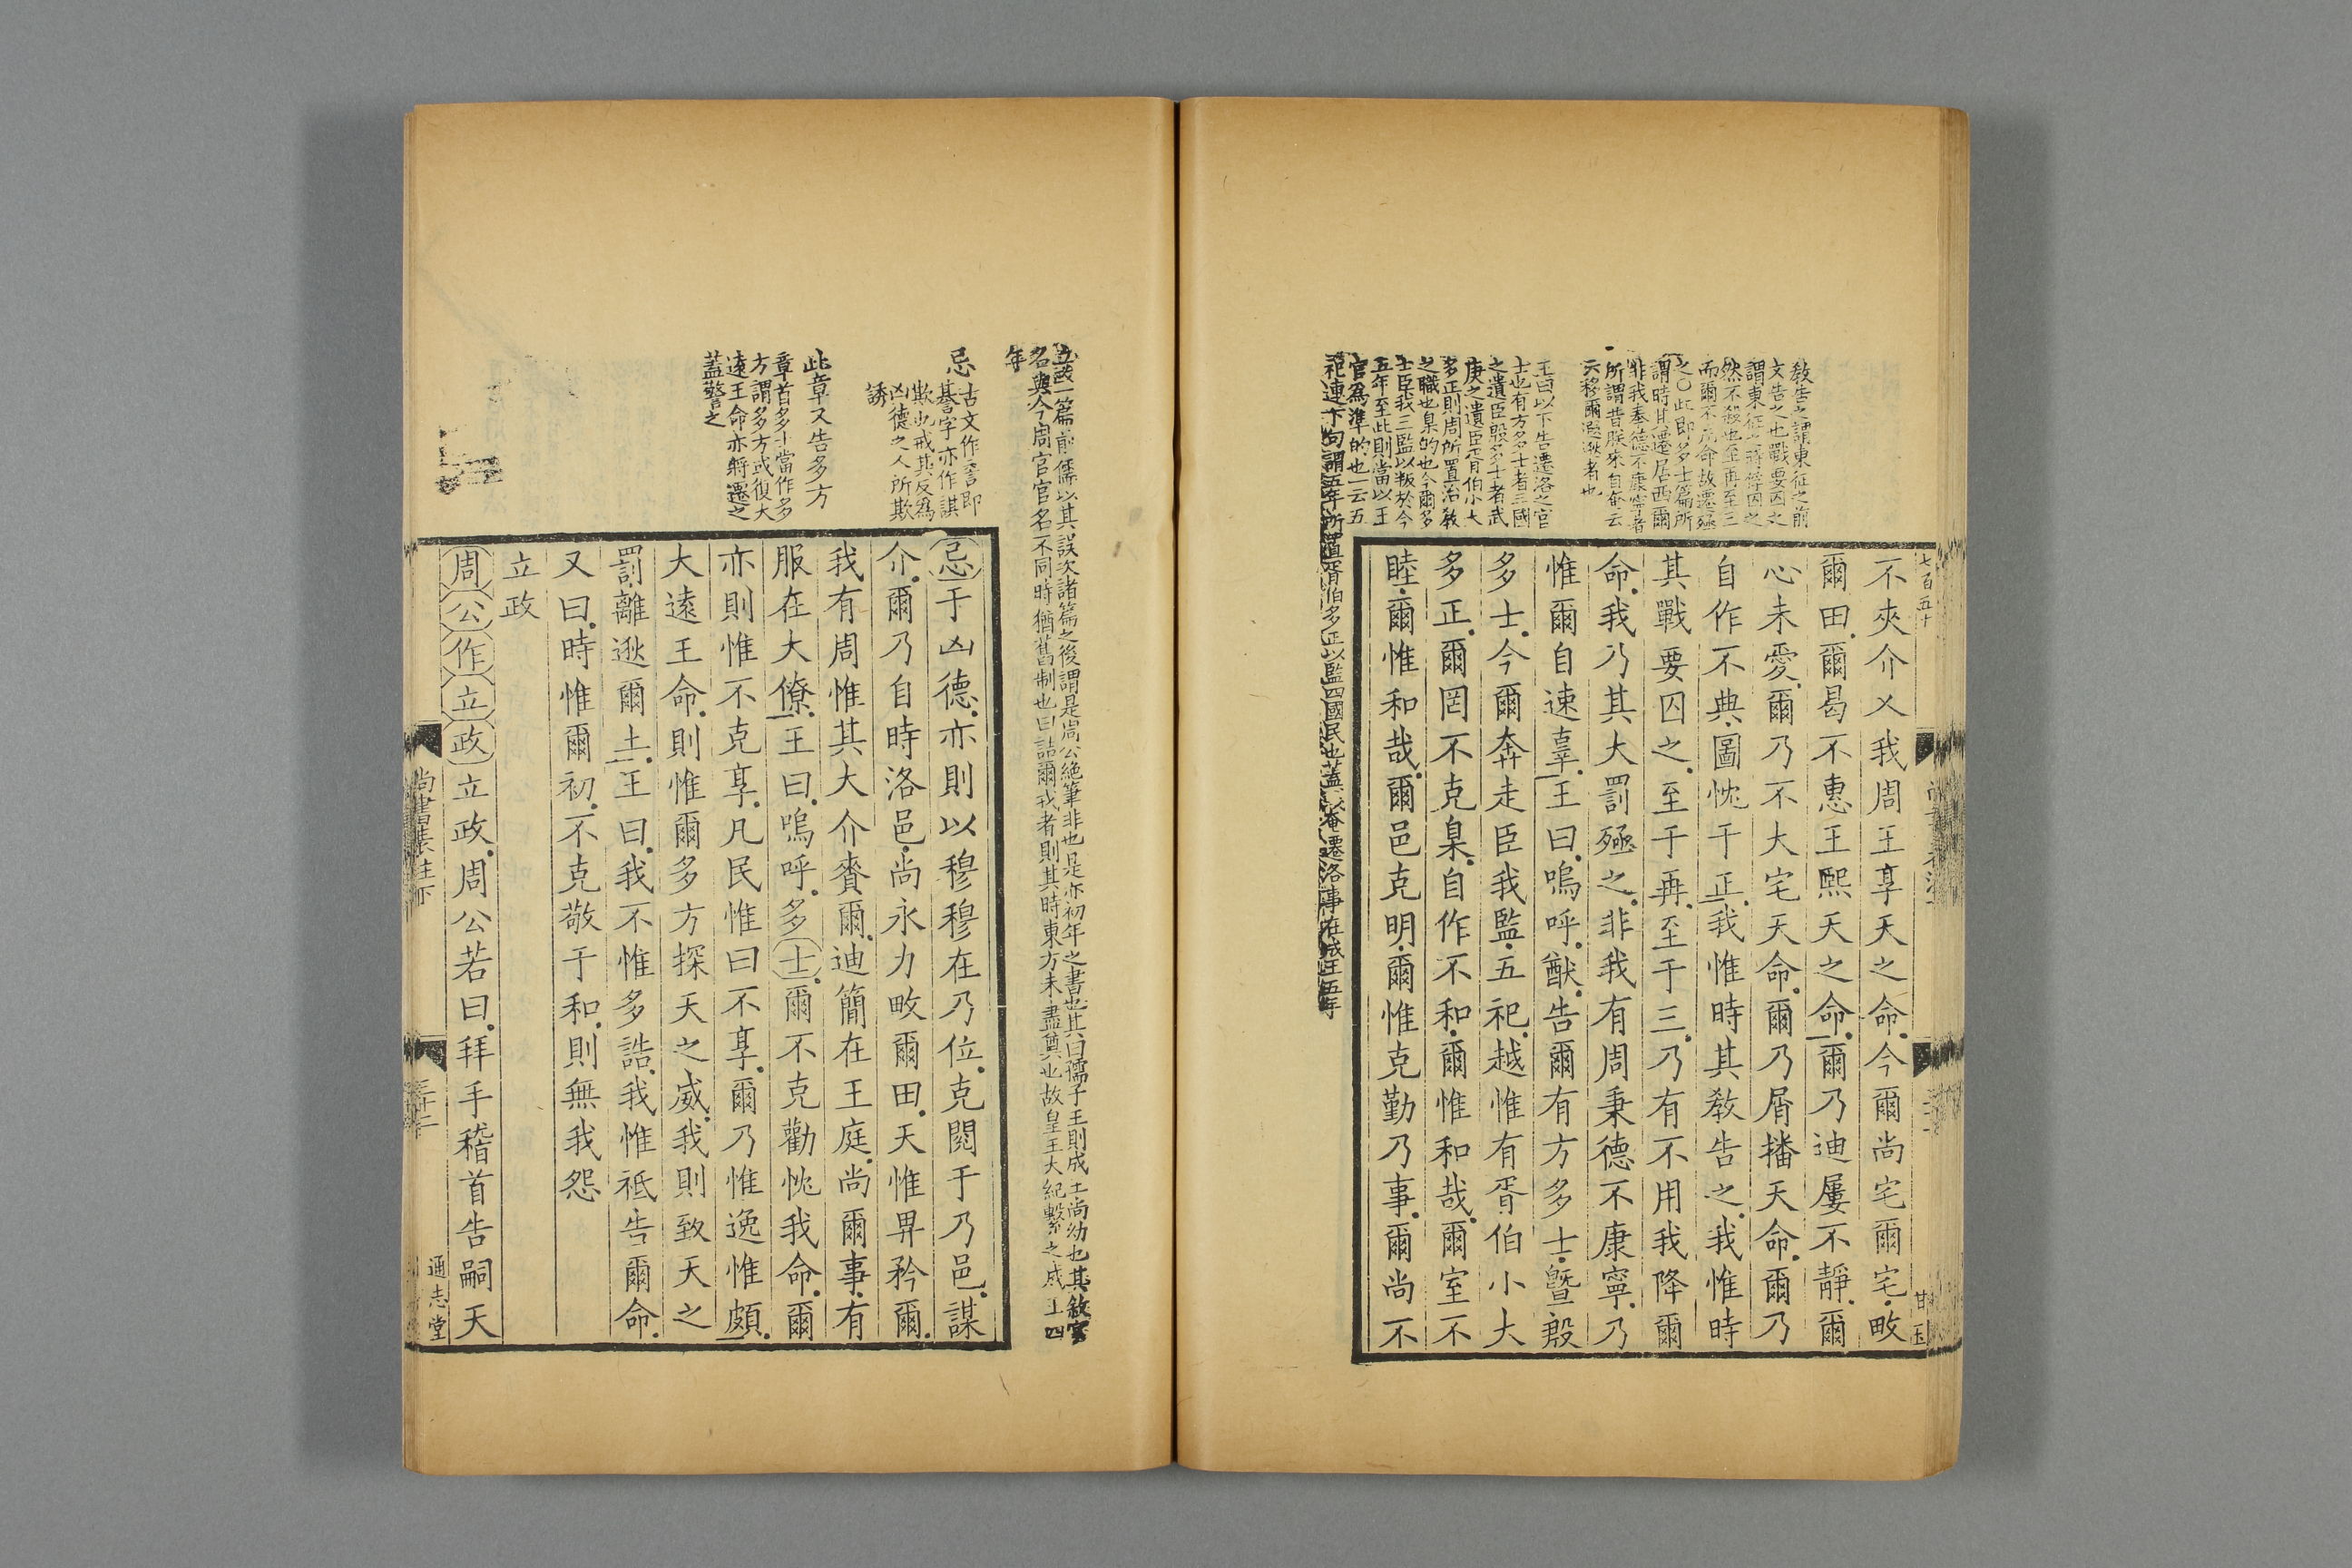 教告之謂東征之前
文告之也戰要囚之
謂東征之時俘囚之
然不殺也至再至三
而爾不用命故遷殛
之○此即多士篇所
謂時其遷居西爾
非我奉德不康寧者
所謂昔朕來自奄云
云移爾遐逖者也
王曰以下告遷洛之官
士也有方多士者三國
之遺臣殷多士者武
庚之遺臣胥伯小大
多正則周所置治教
之職也臬的也今爾多
士臣我三監以叛於今
五年至此則當以王
官為準的也一云五
祀連下句謂五年所置胥伯多正以監四國民也蓋奄遷洛事在成王五年
七百五十
不夾介乂我周王享天之命今爾尚宅爾宅畋
爾田爾曷不惠王熙天之命爾乃迪屢不靜爾
心未愛爾乃不大宅天命爾乃屑播天命爾乃
自作不典圖忱于正我惟時其教告之我惟時
其戰要囚之至于再至于三乃有不用我降爾
命我乃其大罰殛之非我有周秉德不康寧乃
惟爾自速辜王曰嗚呼猷告爾有方多士暨殷
多士今爾奔走臣我監五祀越惟有胥伯小大
多正爾罔不克臬自作不和爾惟和哉爾室不
睦爾惟和哉爾邑克明爾惟克勤乃事爾尚不
甘 玉
立政一篇前儒以其誤次諸篇之後謂是周公絶筆非也是亦初年之書也其曰孺子王則成王尚幼也其敘官
名與今周官官名不同時猶舊制也曰詰爾戎者則其時東方未盡奠也故皇王大紀繫之成王四
年
忌
古文作𧫚即
諅字亦作諆
欺也戒其反為
凶德之人所欺
誘
此章又告多方
章首多士當作多
方謂多方或復大
遠王命亦將遷之
蓋警之
忌于凶德亦則以穆穆在乃位克閱于乃邑謀
介爾乃自時洛邑尚永力畋爾田天惟畀矜爾
我有周惟其大介賚爾迪簡在王庭尚爾事有
服在大僚王曰嗚呼多士爾不克勸忱我命爾
亦則惟不克享凡民惟曰不享爾乃惟逸惟頗
大遠王命則惟爾多方探天之威我則致天之
罰離逖爾土王曰我不惟多誥我惟祗告爾命
又曰時惟爾初不克敬于和則無我怨
立政
周公作立政立政周公若曰拜手稽首告嗣天
尚書表注下
三十二
通志堂